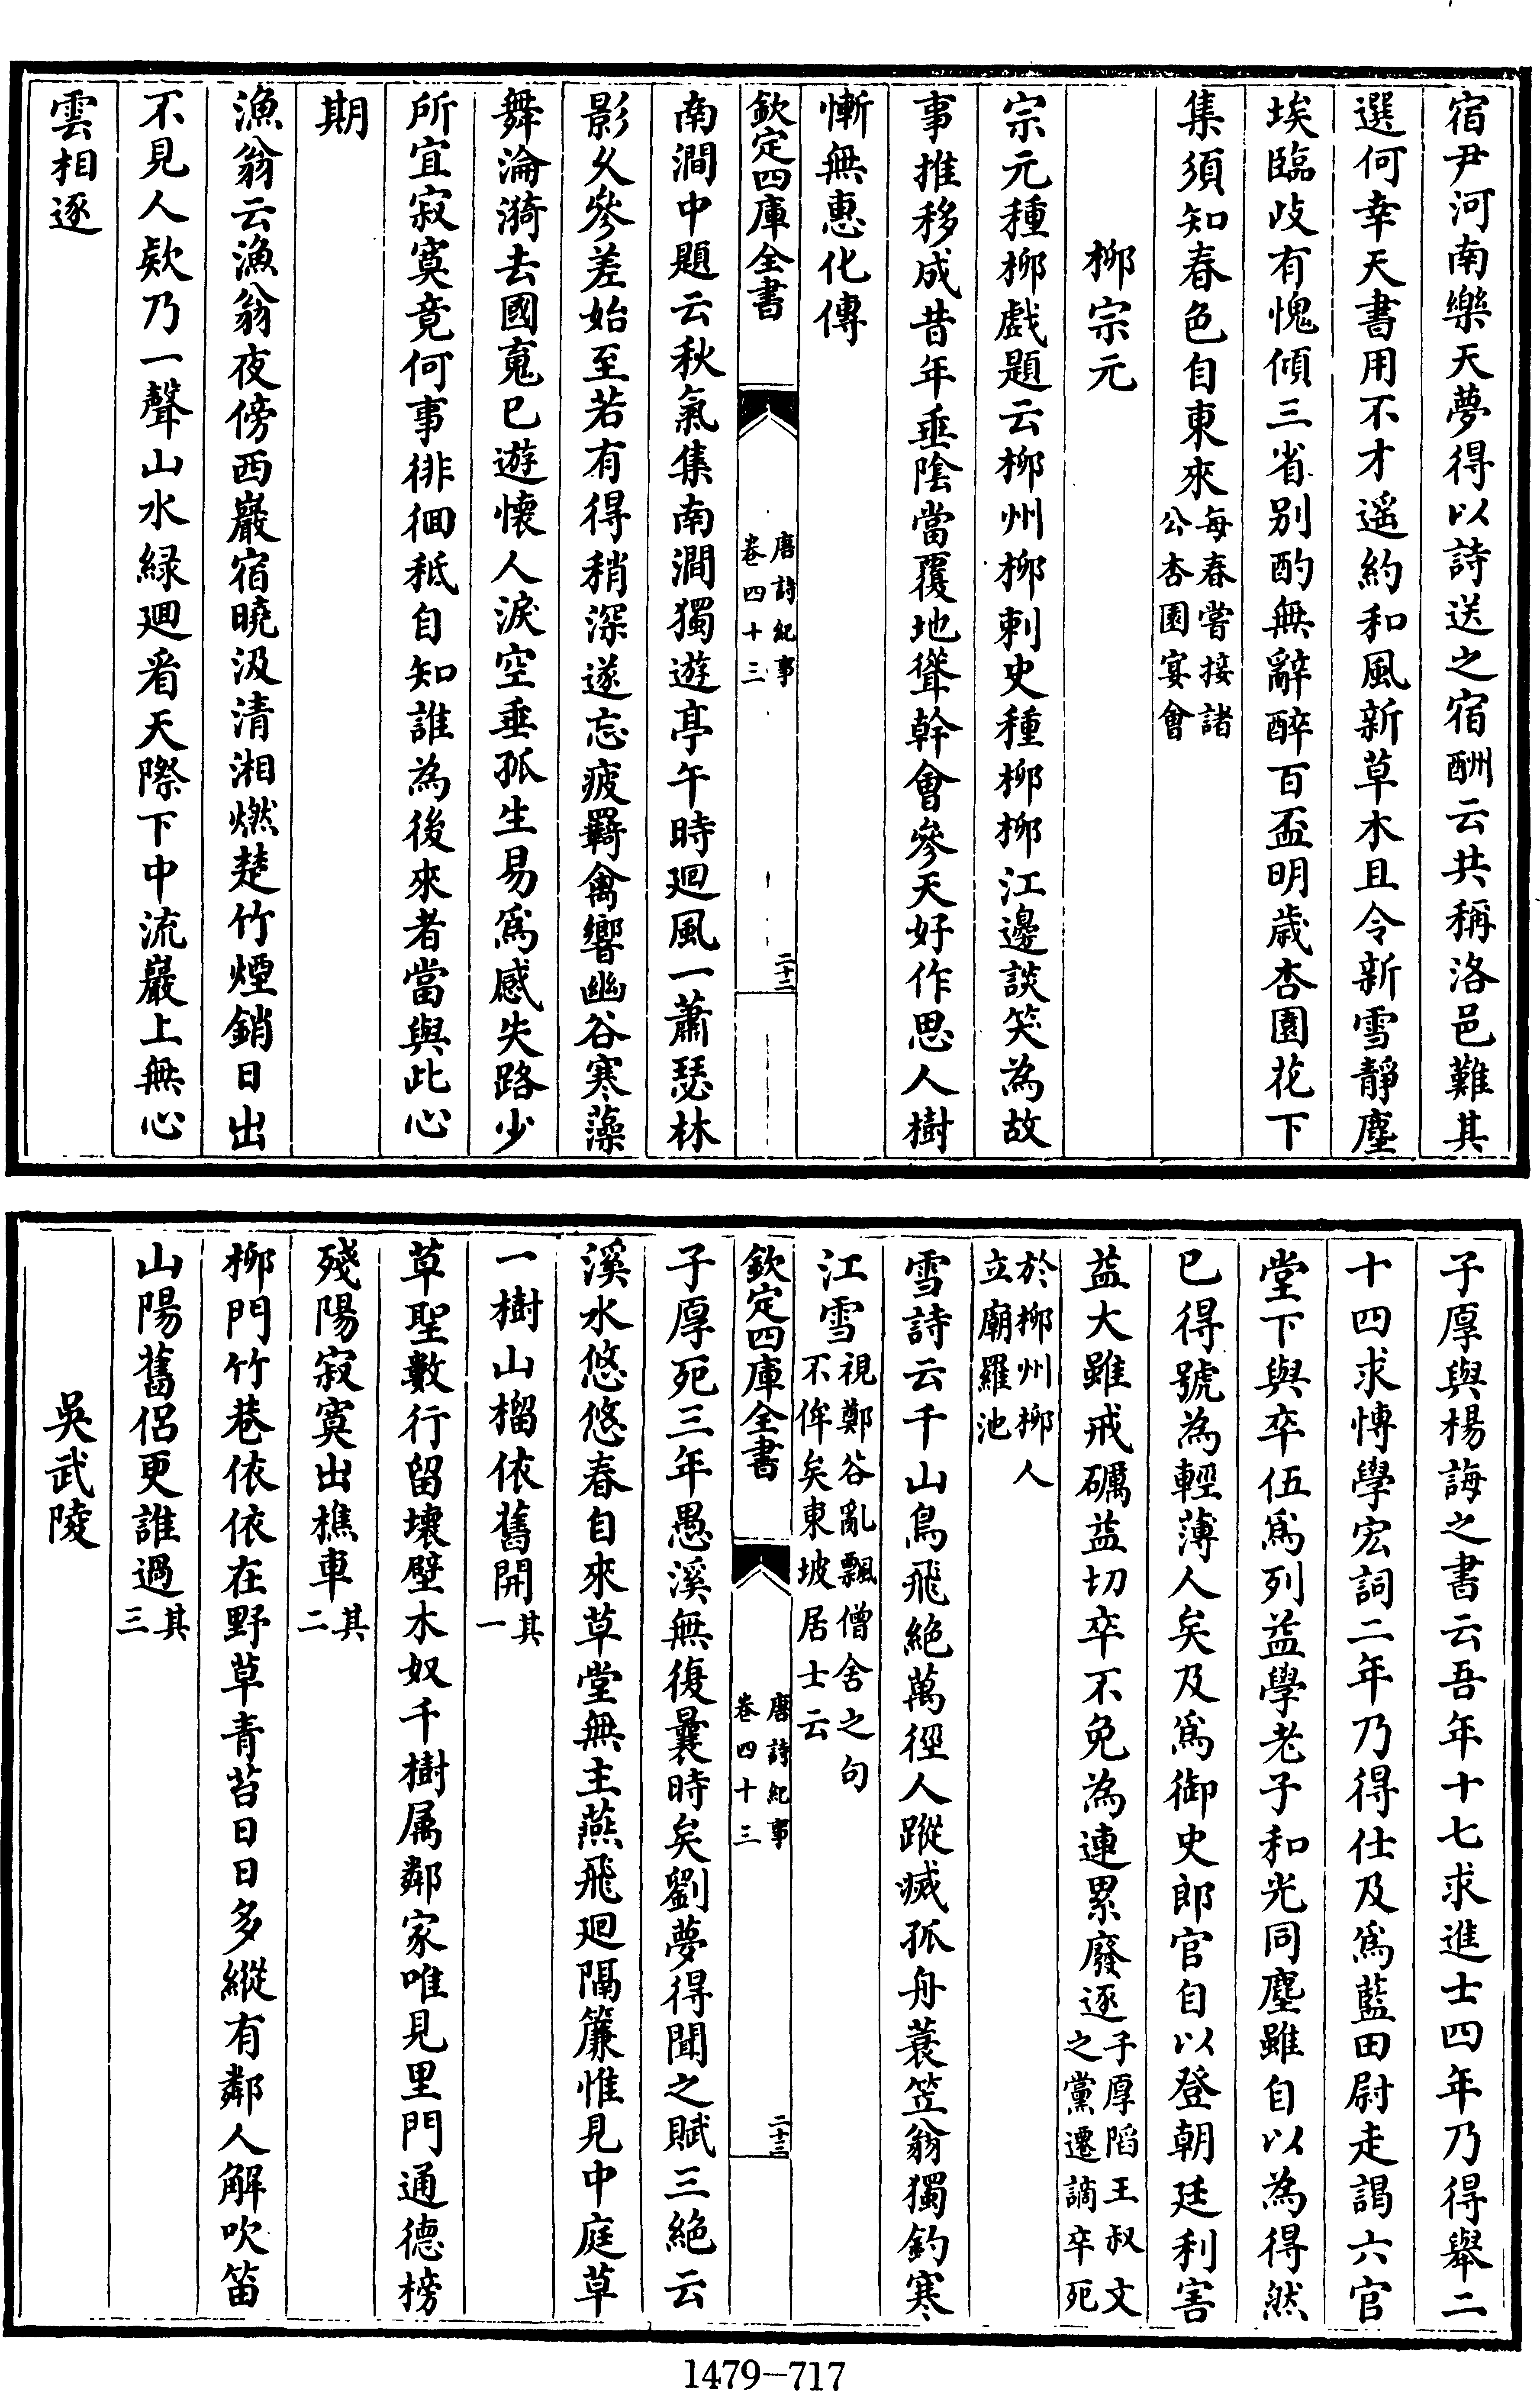 宿尹河南樂天夢得以詩送之宿酬云共稱洛邑難其
選何幸天書用不才遥約和風新草木且令新雪静塵
埃臨歧有愧傾三省别酌無辭醉百盃明歳杏園花下
集須知春色自東來每春嘗接諸公杏園宴會
柳宗元
宗元種柳戲題云柳州柳刺史種柳柳江邊談笑為故
事推移成昔年垂陰當覆地聳幹會參天好作思人樹
慚無惠化傳
欽定四庫全書
唐詩紀事
卷四十三
二十二
南澗中題云秋氣集南澗獨遊亭午時廻風一蕭瑟林
影久參差始至若有得稍深遂忘疲羇禽響幽谷寒藻
舞淪漪去國䰟已遊懐人淚空垂孤生易為感失路少
所宜寂寞竟何事徘徊秪自知誰為後來者當與此心
期
漁翁云漁翁夜傍西巖宿曉汲清湘燃楚竹煙銷日出
不見人欸乃一聲山水緑廻看天際下中流巖上無心
雲相逐
子厚與楊誨之書云吾年十七求進士四年乃得舉二
十四求博學宏詞二年乃得仕及為藍田尉走謁六官
堂下與卒伍為列益學老子和光同塵雖自以為得然
已得號為輕薄人矣及為御史郎官自以登朝廷利害
益大雖戒礪益切卒不免為連累廢逐子厚䧟王叔文之黨遷謫卒死
於柳州柳人立廟羅池
雪詩云千山鳥飛絶萬徑人蹤滅孤舟蓑笠翁獨釣寒
江雪視鄭谷亂飄僧舍之句不侔矣東坡居士云
欽定四庫全書
唐詩紀事
卷四十三
二十三
子厚死三年愚溪無復曩時矣劉夢得聞之賦三絶云
溪水悠悠春自來草堂無主燕飛廻隔簾惟見中庭草
一樹山榴依舊開其一
草聖數行留壞壁木奴千樹属鄰家唯見里門通德榜
殘陽寂寞出樵車其二
柳門竹巷依依在野草青苔日日多縱有鄰人解吹笛
山陽舊侶更誰過其三
吳武陵
1479-717